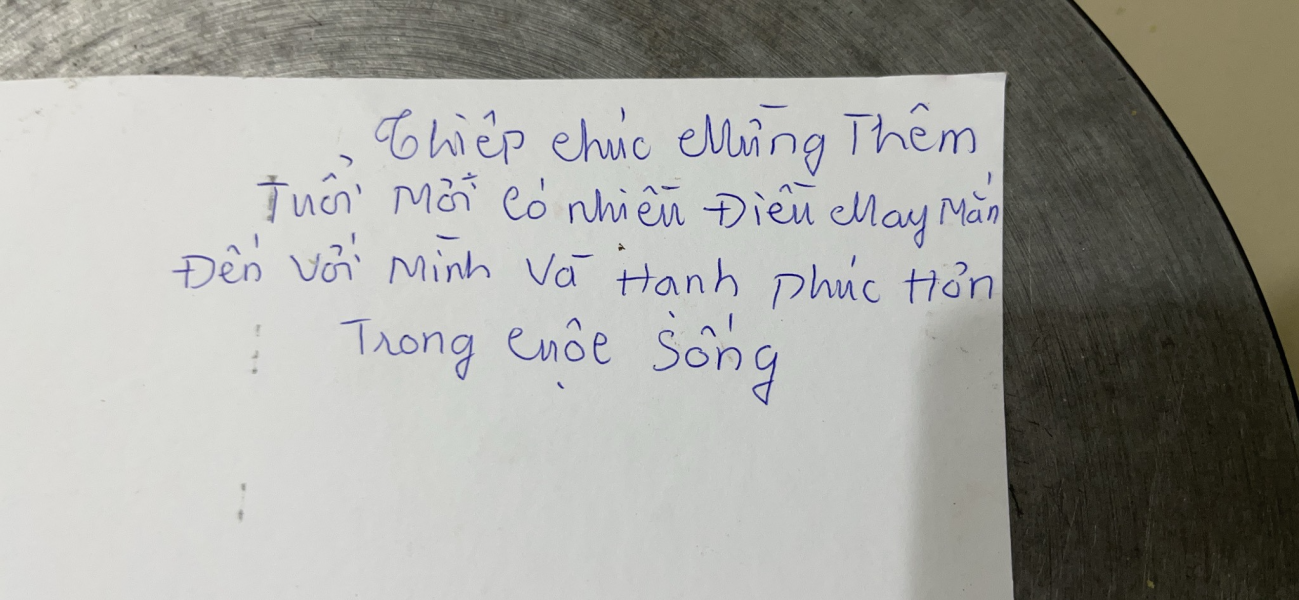 Thiêp chúc Mừng Thêm
Tuổi Mới Có nhiều Điều May Mắn
Đến Với Mình Và Hanh Phúc Hơn
Trong Cuộc Sống